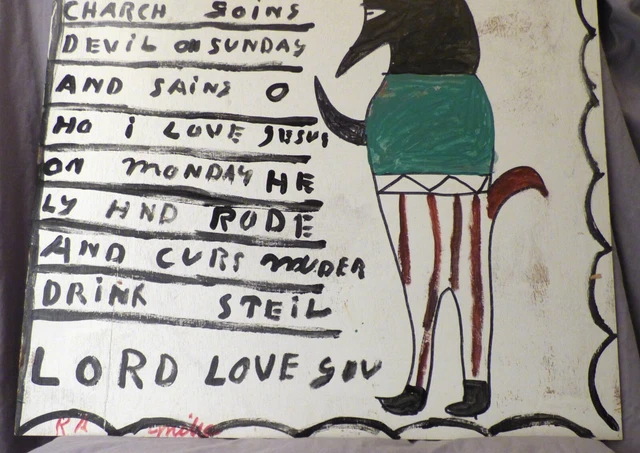 CHARCH GOINS
DEVIL ON SUNDAY
AND SAINS O
HO i LOVE JESUS
ON MONDAY HE
LY AND RUDE
AND CURS MUDER
DRINK STEIL
LORD LOVE YOU
R A miller